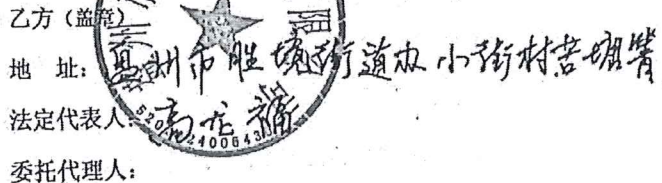 乙方（盖章）
地 址：盘州市胜境街道办小街村苦塘箐
法定代表人：高龙
委托代理人：